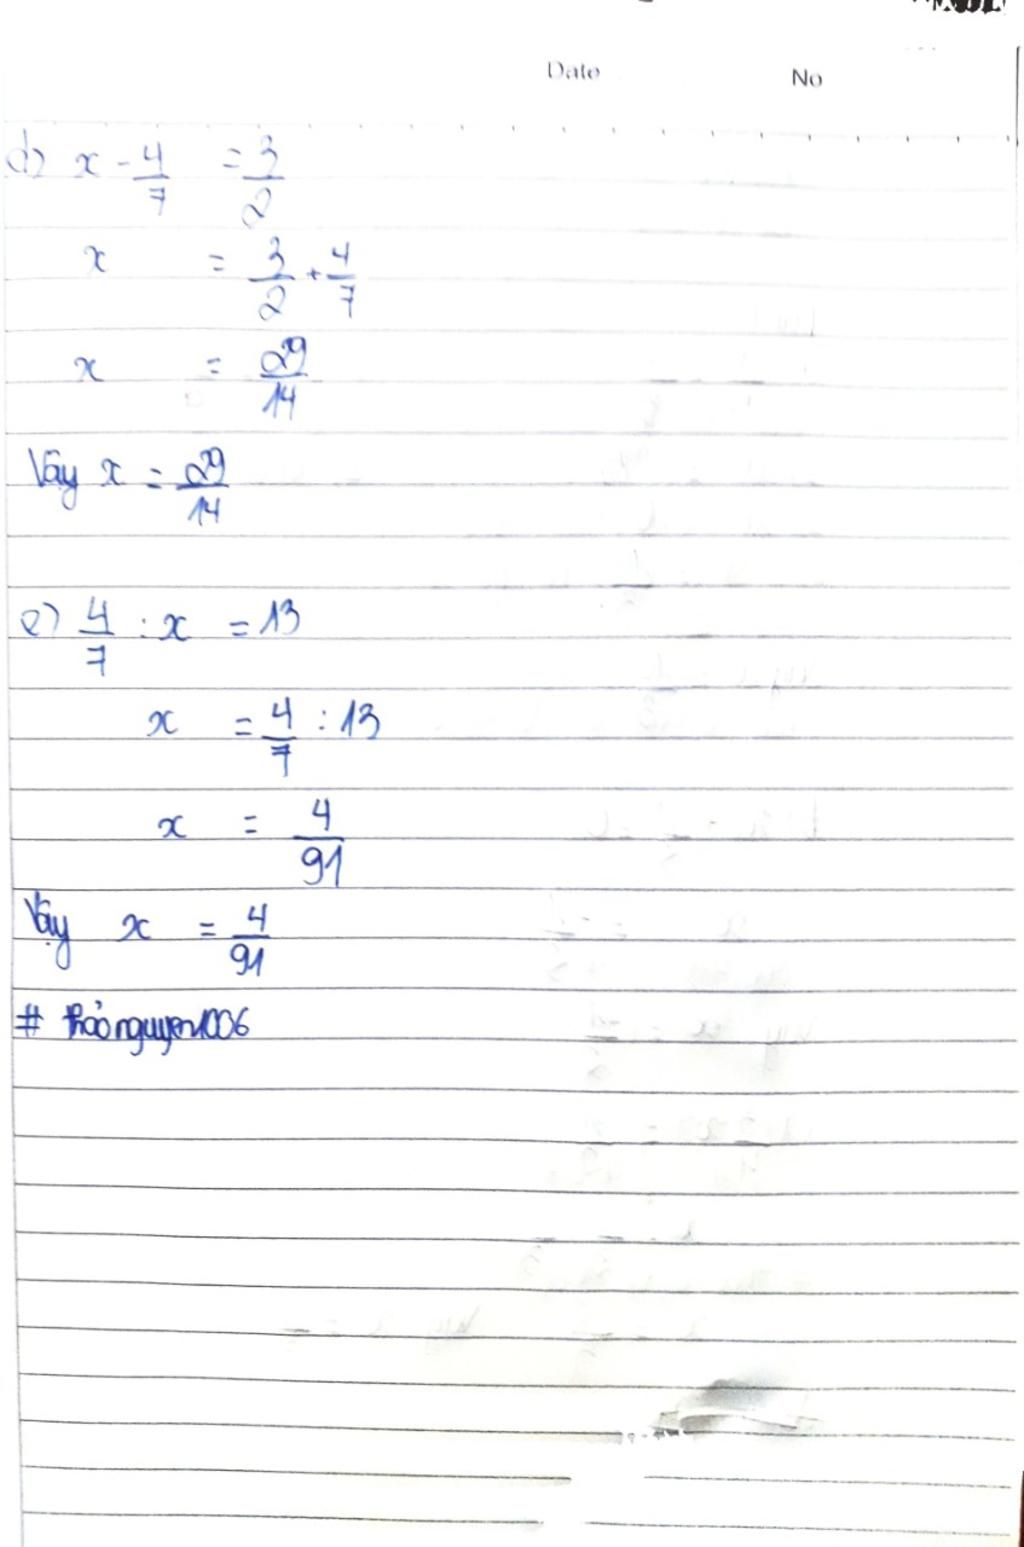 Date No
d) x - 4/7 = 3/2
x = 3/2 + 4/7
x = 29/14
Vậy x = 29/14
e) 4/7 : x = 13
x = 4/7 : 13
x = 4/91
Vậy x = 4/91
# thảonguyen1006